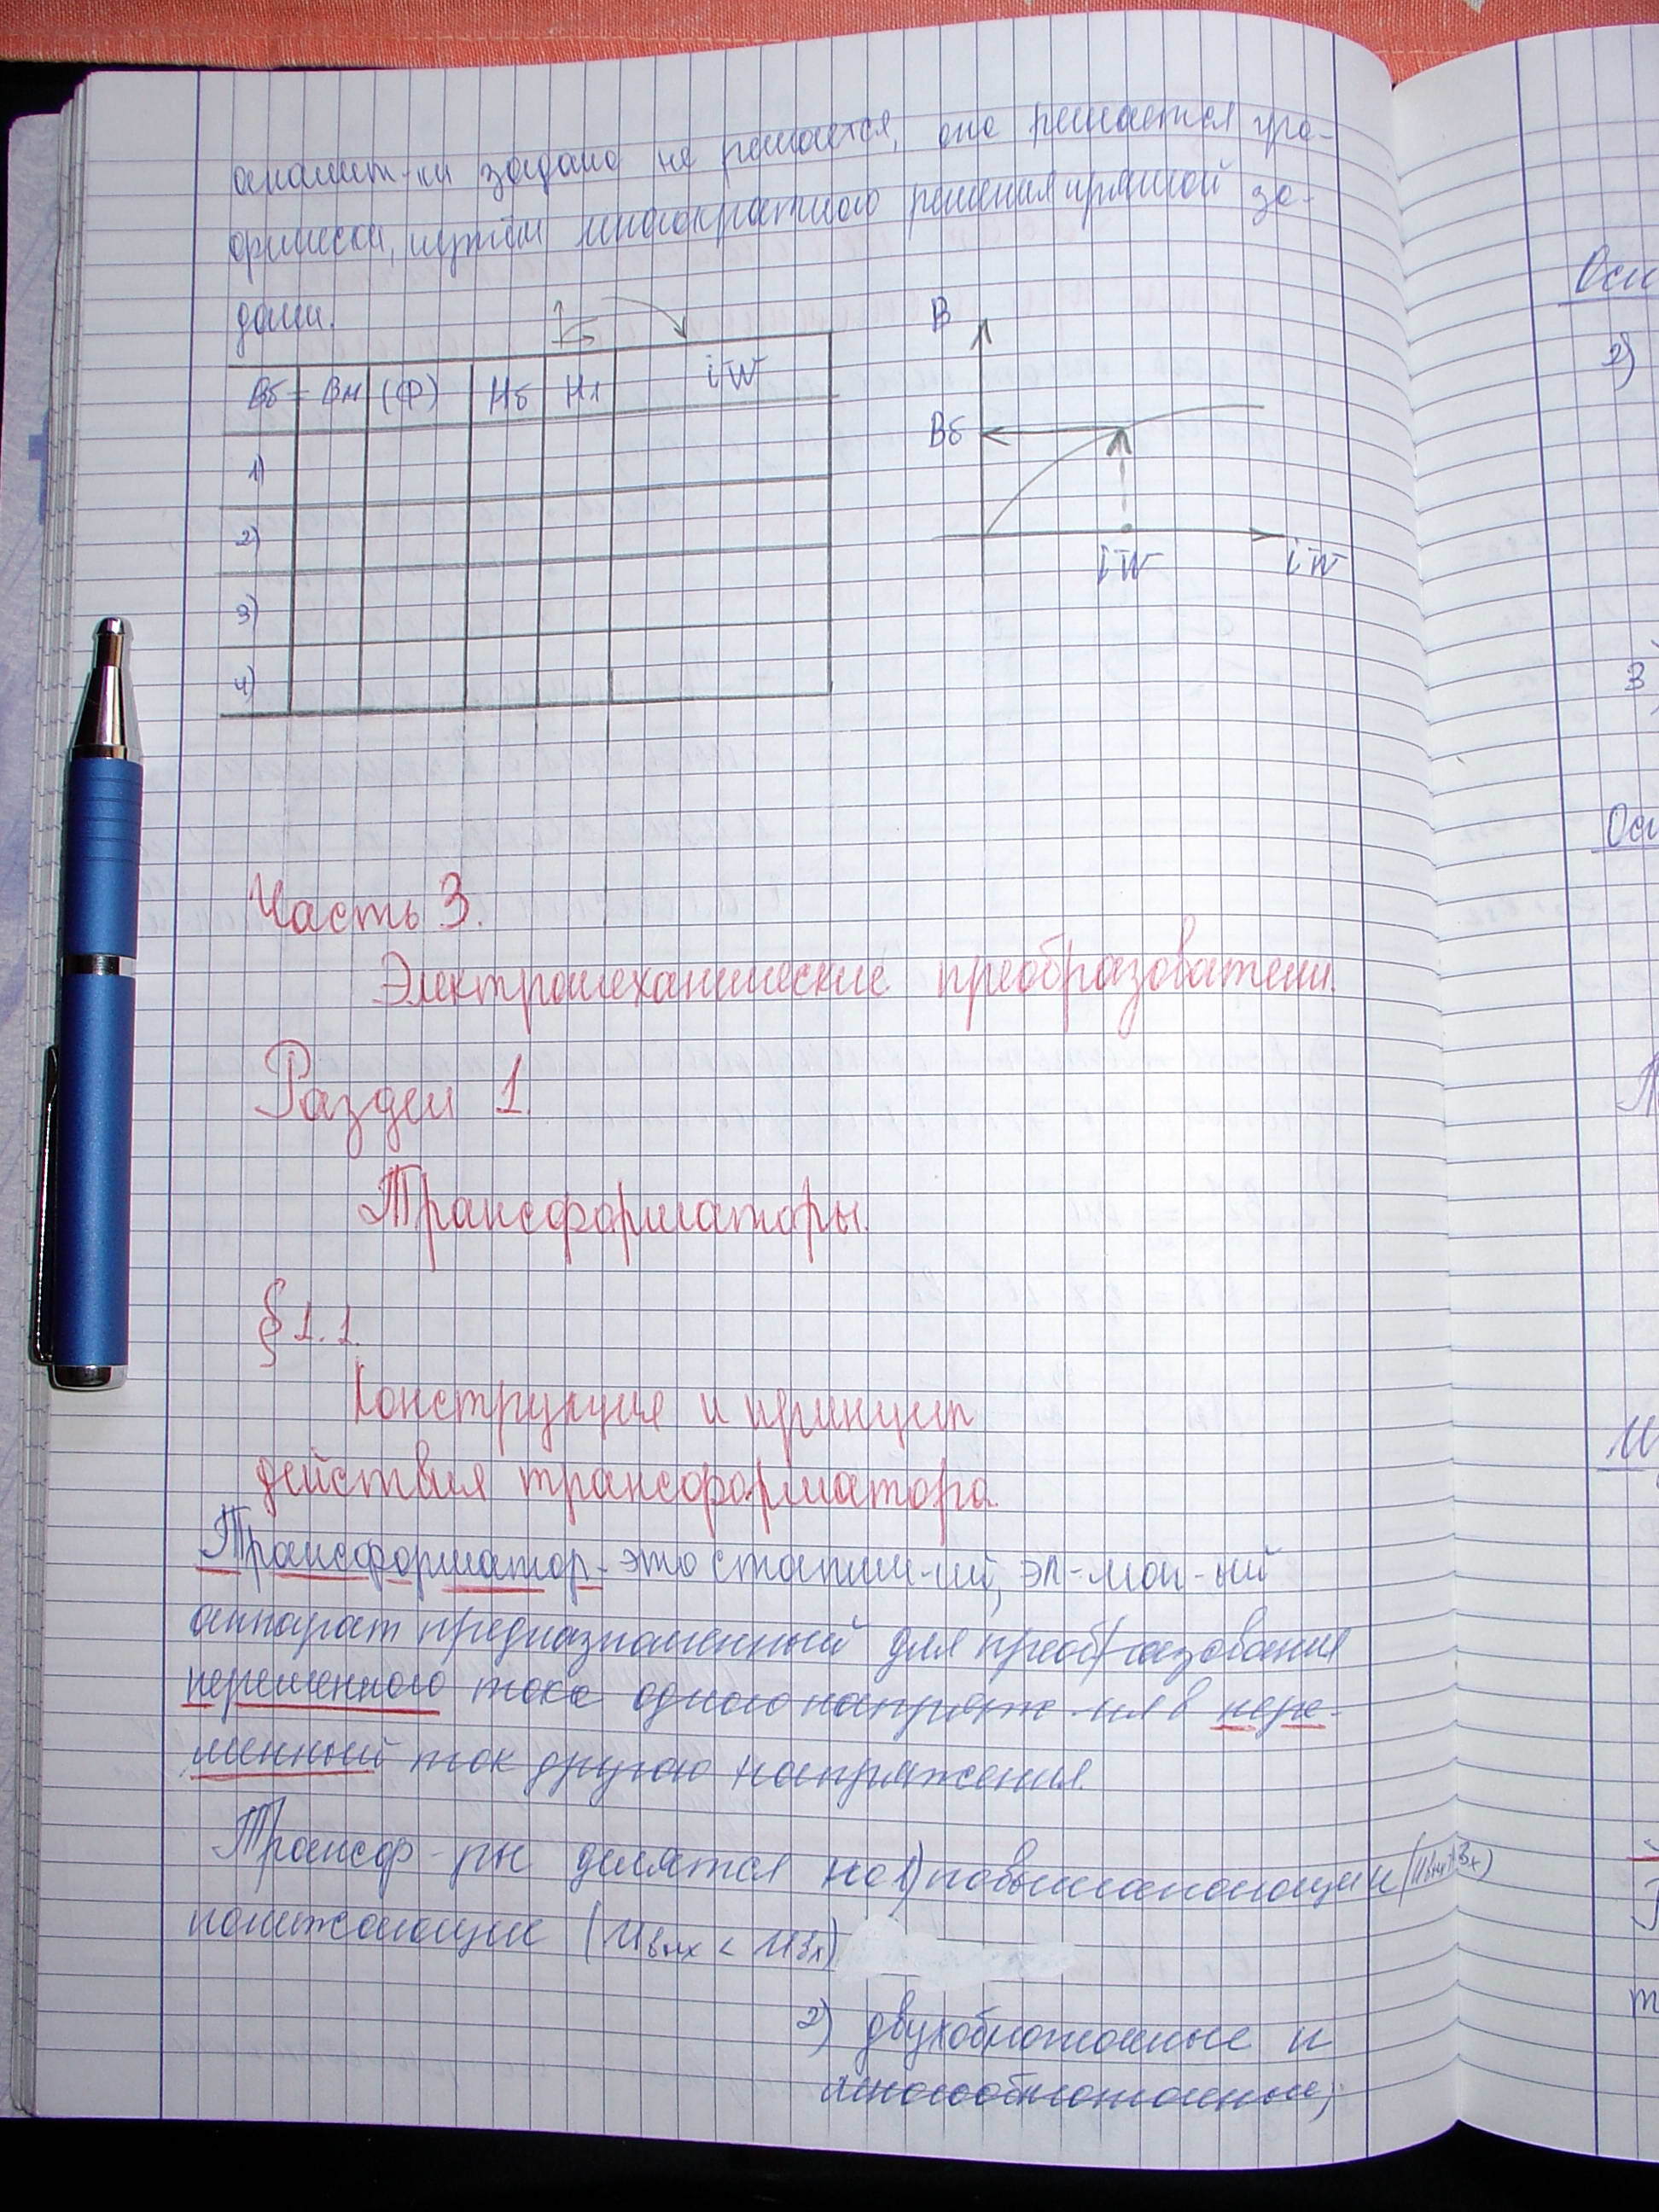 аналит-ки задача не решается, она решается гра-
фически, путём многократного решения прямой за-
дачи.
Вб = Вл (Ф) Нб Нл iw
1)
2)
3)
4)
В
Вб
iw iw
Часть 3.
Электромеханические преобразователи.
Раздел 1.
Трансформаторы.
§ 1.1.
Конструкция и принцип
действия трансформатора
Трансформатор - это статич-ий, эл-маг-ый
аппарат предназначенный для преобразования
переменного тока одного напряж-ия в пере-
менный ток другого напряжения.
Трансф-ры делятся на 1) повышающии
понижающие (Uвых < Uвх)
2) двухобмоточные и
многообмоточные;
Осн
2)
3
Осн